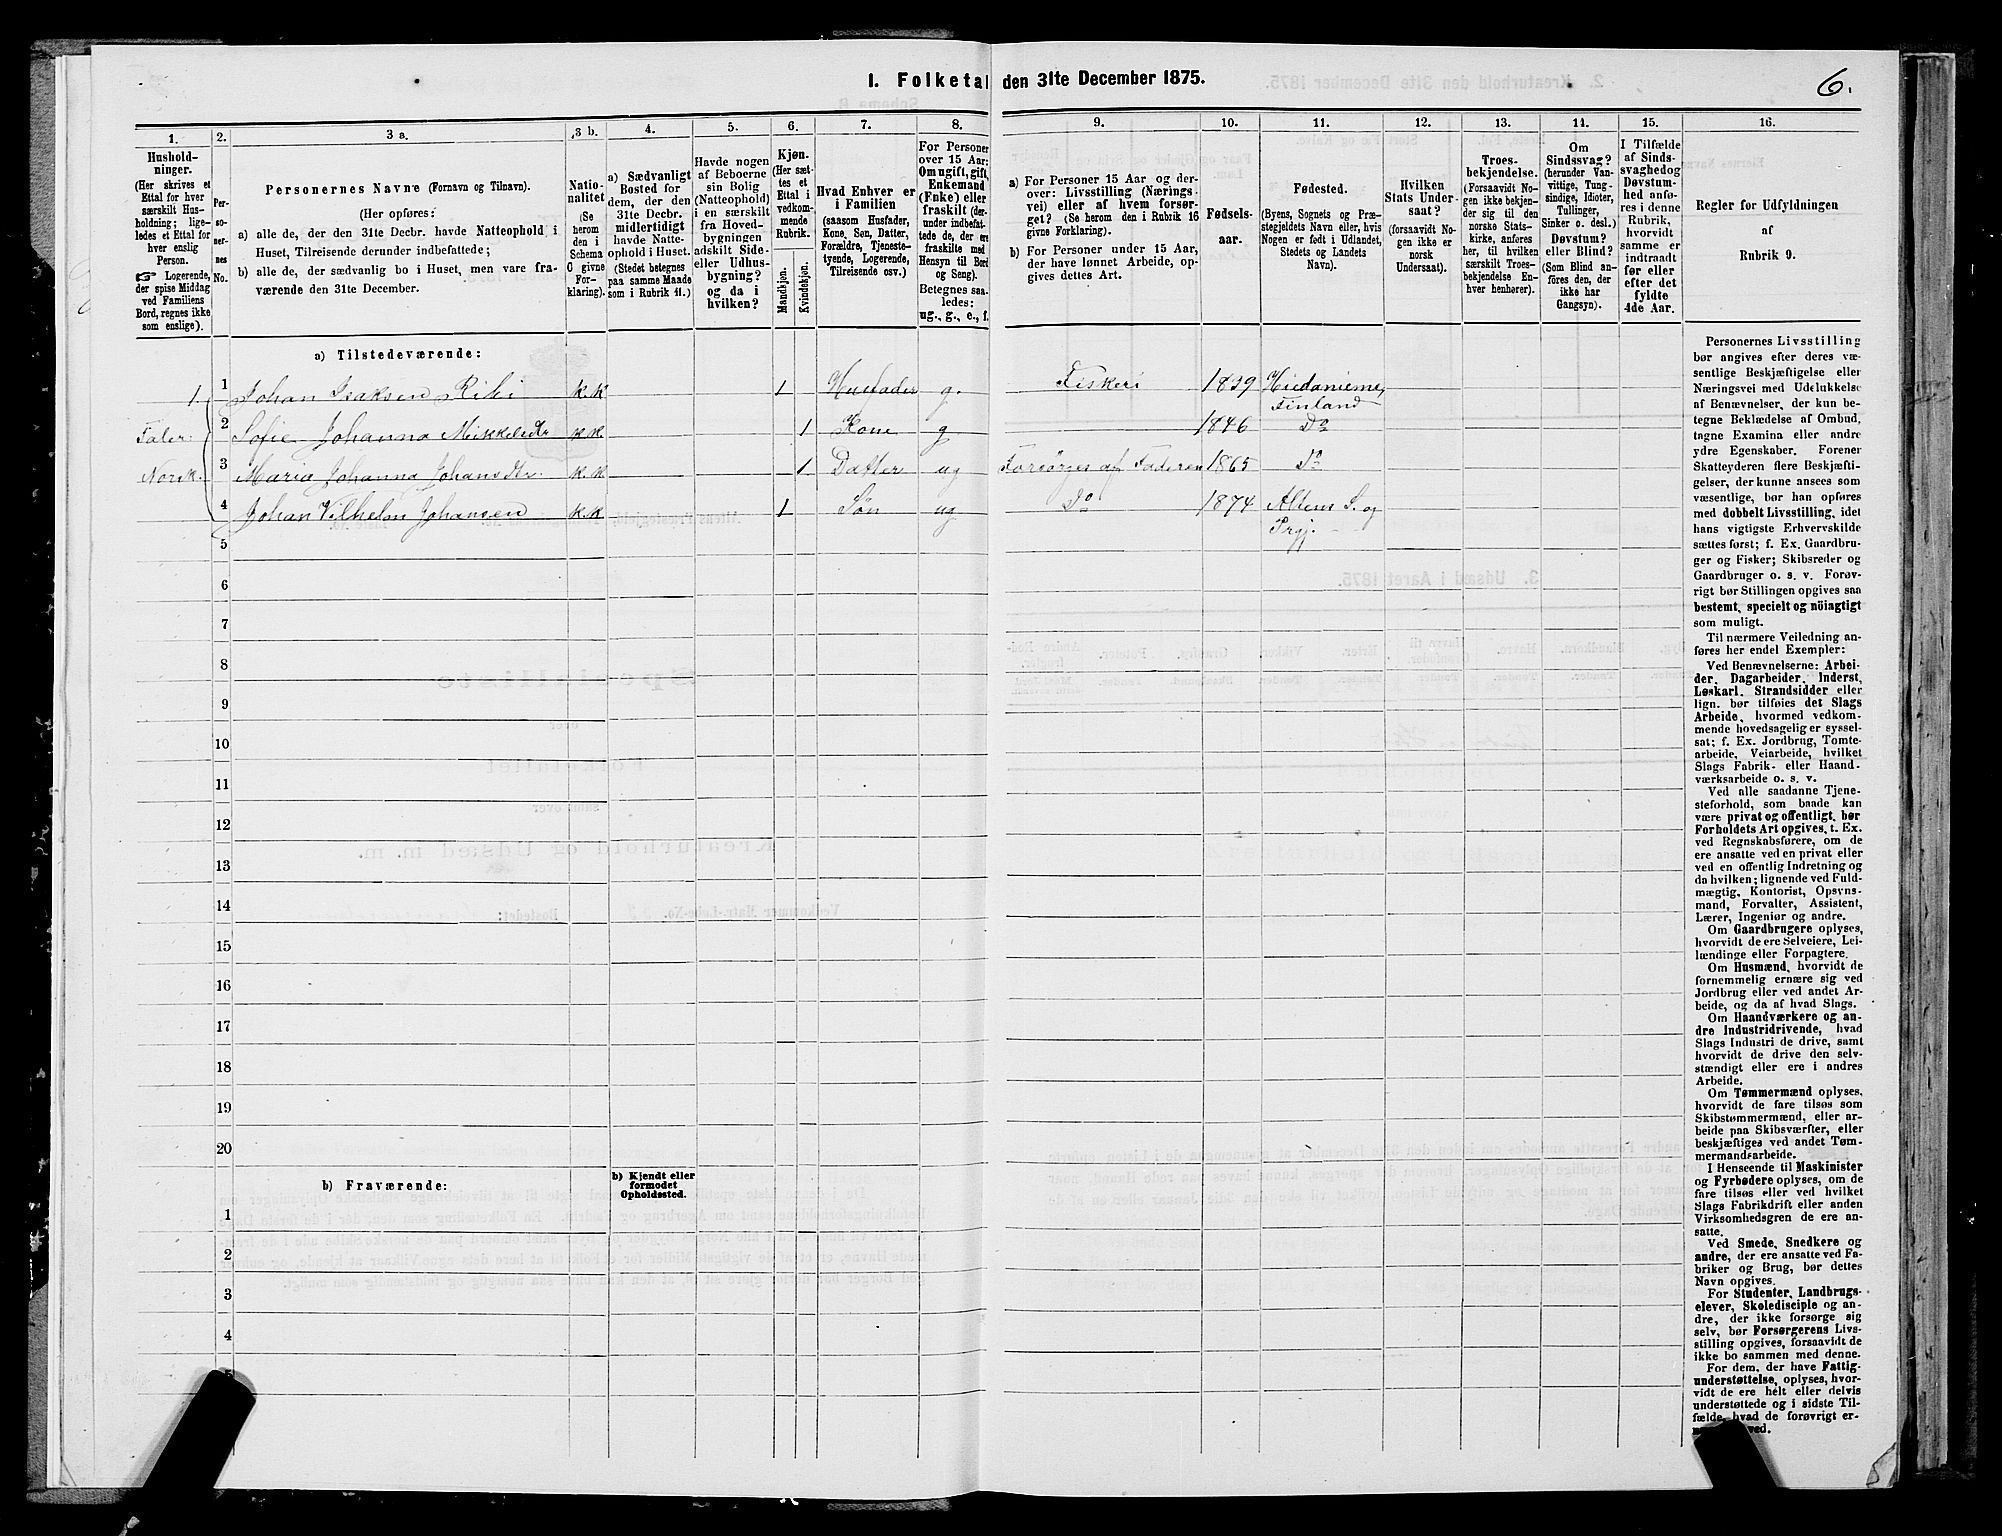 1. Folketal den 31te December 1875.
6.
1.
Hushold-
ninger.
(Her skrives et
Ettal for hver
særskilt Hus-
holdning; lige-
ledes et Ettal for
hver enslig
Person.
☞ Logerende,
der spise Middag
ved Familiens
Bord, regnes ikke
som enslige).
2.
Per-
so-
ner-
nes
No.
3 a.
Personernes Navne (Fornavn og Tilnavn).
(Her opføres:
a) alle de, der den 31te Decbr. havde Natteophold i
Huset, Tilreisende derunder indbefattede;
b) alle de, der sædvanlig bo i Huset, men vare fra-
værende den 31te December.
3 b.
Natio-
nalitet
(Se
herom
den i
Schema
C givne
For-
klaring).
4.
a) Sædvanligt
Bosted for
dem, der den
31te Decbr.
midlertidigt
havde Natte-
ophold i Huset.
(Stedet betegnes
paa samme Maade
som i Rubrik 11.)
5.
Havde nogen
af Beboerne
sin Bolig
(Natteophold)
i en særskilt
fra Hoved-
bygningen
adskilt Side-
eller Udhus-
bygning?
og da i
hvilken?
6.
Kjøn.
(Her sæt-
tes et
Ettal i
vedkom-
mende
Rubrik.
Mandkjøn.
Kvindekjøn.
7.
Hvad Enhver er
i Familien
(saasom Husfader,
Kone, Søn, Datter,
Forældre, Tjeneste-
tyende, Logerende,
Tilreisende osv.)
8.
For Personer
over 15 Aar:
Om ugift, gift,
Enkemand
(Enke) eller
fraskilt (der-
under indbefat-
tede de, der ere
fraskilte med
Hensyn til Bord
og Seng).
Betegnes saa-
ledes:
ug., g., e., f.
9.
a) For Personer 15 Aar og der-
over: Livsstilling (Nærings-
vei) eller af hvem forsør-
get? (Se herom den i Rubrik 16
givne Forklaring).
b) For Personer under 15 Aar,
der have lønnet Arbeide, op-
gives dettes Art.
10.
Fødsels-
aar.
11.
Fødested.
(Byens, Sognets og Præ-
stegjeldets Navn eller, hvis
Nogen er født i Udlandet,
Stedets og Landets
Navn).
12.
Hvilken
Stats Under-
saat?
(forsaavidt No-
gen ikke er
norsk
Undersaat).
13.
Troes-
bekjendelse.
(Forsaavidt No-
gen ikke bekjen-
der sig til den
norske Stats-
kirke, anføres
her, til hvilken
særskilt Troes-
bekjendelse En-
hver henhører).
14.
Om
Sindssvag?
(herunder Van-
vittige, Tung-
sindige, Idioter,
Tullinger,
Sinker o. desl.)
Døvstum?
eller Blind?
(Som Blind an-
føres den, der
ikke har
Gangsyn).
15.
I Tilfælde
af Sinds-
svaghed og
Døvstum-
hed anfø-
res i denne
Rubrik,
hvorvidt
samme er
indtraadt
før eller
efter det
fyldte
4de Aar.
16.
Regler for Udfyldningen
af
Rubrik 9.
a) Tilstedeværende:
1. 1 Johan Isaksen Ribi k.k 1 Husfader g. Fiskeri 1829 Hiedanieme, Finland
Taler 2 Sofie Johanna Mikkelsdtr k.k. 1 Kone g 1846 Do
Norsk. 3 Maria Johanna Johansdtr. k.k 1 Datter ug Forsörges af Faderen 1865 Do
4 Johan Vilhelm Johansen k.k 1 Søn ug Do 1874 Altens S. og Prgj.
5
6
7
8
9
10
11
12
13
14
15
16
17
18
19
20
b) Fraværende:
b) Kjendt eller
formodet
Opholdssted.
1
2
3
4
Personernes Livsstilling
bør angives efter deres væ-
sentlige Beskjæftigelse eller
Næringsvei med Udelukkelse
af Benævnelser, der kun be-
tegne Beklædelse af Ombud,
tagne Examina eller andre
ydre Egenskaber. Forener
Skatteyderen flere Beskjæfti-
gelser, der kunne ansees som
væsentlige, bør han opføres
med dobbelt Livsstilling, idet
hans vigtigste Erhvervskilde
sættes først; f. Ex. Gaardbru-
ger og Fisker; Skibsreder og
Gaardbruger o. s. v. Forøv-
rigt bør Stillingen opgives saa
bestemt, specielt og nöiagtigt
som muligt.
Til nærmere Veiledning an-
føres her endel Exempler:
Ved Benævnelserne: Arbei-
der, Dagarbeider, Inderst,
Løskarl, Strandsidder eller
lign. bør tilføies det Slags
Arbeide, hvormed vedkom-
mende hovedsagelig er syssel-
sat; f. Ex. Jordbrug, Tomte-
arbeide, Veiarbeide, hvilket
Slags Fabrik- eller Haand-
værksarbeide o. s. v.
Ved alle saadanne Tjene-
steforhold, som baade kan
være privat og offentligt, bør
Forholdets Art opgives, t. Ex.
ved Regnskabsførere, om de
ere ansatte ved en privat eller
ved en offentlig Indretning og
da hvilken; lignende ved Fuld-
mægtig, Kontorist, Opsyns-
mand, Forvalter, Assistent,
Lærer, Ingeniør og andre.
Om Gaardbrugere oplyses,
hvorvidt de ere Selveiere, Lei-
lændinge eller Forpagtere.
Om Husmænd, hvorvidt de
fornemmelig ernære sig ved
Jordbrug eller ved andet Ar-
beide, og da af hvad Slags.
Om Haandværkere og an-
dre Industridrivende, hvad
Slags Industri de drive, samt
hvorvidt de drive den selv-
stændigt eller ere i andres
Arbeide.
Om Tømmermænd oplyses,
hvorvidt de fare tilsøs som
Skibstømmermænd, eller ar-
beide paa Skibsværfter, eller
beskjæftiges ved andet Tøm-
mermandsarbeide.
I Henseende til Maskinister
og Fyrbødere oplyses, om de
fare tilsøs eller ved hvilket
Slags Fabrikdrift eller anden
Virksomhedsgren de ere an-
satte.
Ved Smede, Snedkere og
andre, der ere ansatte ved Fa-
briker og Brug, bør dettes
Navn opgives.
For Studenter, Landbrugs-
elever, Skoledisciple og an-
dre, der ikke forsørge sig
selv, bør Forsørgerens Livs-
stilling opgives, forsaavidt de
ikke bo sammen med denne.
For dem, der have Fattig-
understøttelse, oplyses, hvor-
vidt de ere helt eller delvis
understøttede og i sidste Til-
fælde, hvad de forøvrigt er-
ved.